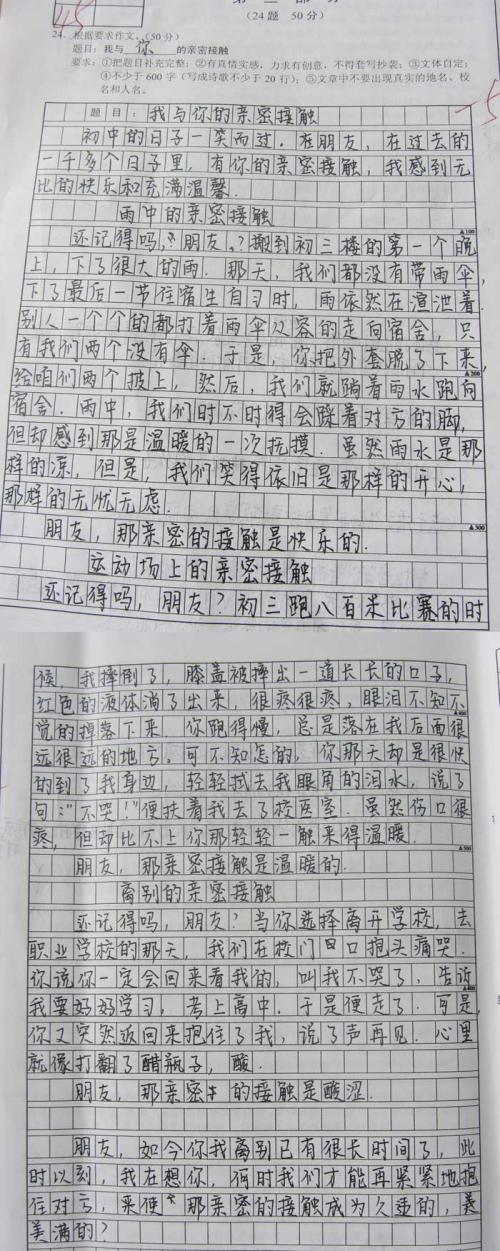 45
(24题 50分)
24. 根据要求作文。(50分)
题目:我与 你 的亲密接触
要求:①把题目补充完整;②有真情实感,力求有创意,不得套写抄袭;③文体自定;
④不少于 600 字(写成诗歌不少于 20 行);⑤文章中不要出现真实的地名、校
名和人名。
-5
题目:我与你的亲密接触
初中的日子一笑而过.在朋友,在过去的
一千多个日子里,有你的亲密接触,我感到无
比的快乐和充满温馨.
雨中的亲密接触
▲100
还记得吗,“朋友,?搬到初三楼的第一个晚
上,下了很大的雨.那天,我们都没有带雨伞,
下了最后一节住宿生自习时,雨依然在滂沱着.
别人一个个的都打着雨伞从容的走向宿舍,只
有我们两个没有伞.于是,你把外套脱了下来,
▲200
给咱们两个披上,然后,我们就蹚着雨水跑向
宿舍.雨中,我们时不时得会踩着对方的脚,
但却感到那是温暖的一次抚摸.虽然雨水是那
样的凉,但是,我们笑得依旧是那样的开心,
那样的无忧无虑.
▲300
朋友,那亲密的接触是快乐的.
运动场上的亲密接触
还记得吗,朋友?初三跑八百米比赛的时
候,我摔倒了,膝盖被摔出一道长长的口子,
红色的液体淌了出来,很疼很疼,眼泪不知不
▲400
觉的掉落下来.你跑得慢,总是落在我后面很
远很远的地方.可不知怎的,你那天却是很快
的到了我身边,轻轻拭去我眼角的泪水,说了
句:“不哭!”便扶着我去了校医室.虽然伤口很
疼,但却比不上你那轻轻一触来得温暖.
▲500
朋友,那亲密接触是温暖的.
离别的亲密接触
还记得吗,朋友?当你选择离开学校,去
职业学校的那天,我们在校门口抱头痛哭.
你说你一定会回来看我的,叫我不哭了,告诉
▲600
我要好好学习,考上高中.于是便走了.可是,
你又突然返回来抱住了我,说了声再见.心里
就像打翻了醋瓶子,酸.
朋友,那亲密的接触是酸涩.
朋友,如今你我离别已有很长时间了,此
时以刻,我在想你,何时我们才能再紧紧地抱
住对方,来使那亲密的接触成为久违的,
美满的?